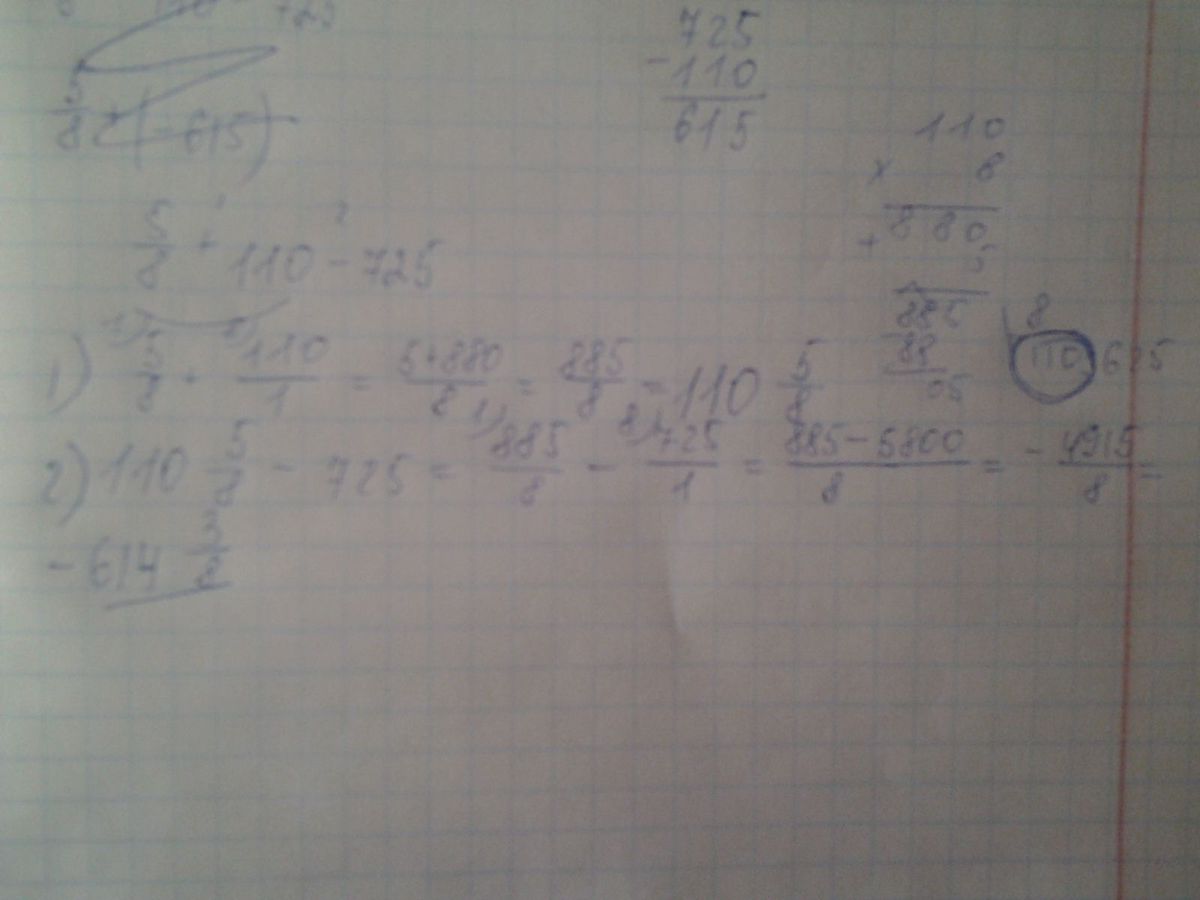 725
725
-110
615
5/8 + (-615)
110
x 8
880
+ 5
885
5/8 + 110 - 725
1) 5/8 + 110/1 = 5+880/8 = 885/8 = 110 5/8
885 8
88 110,625
05
2) 110 5/8 - 725 = 885/8 - 725/1 = 885-5800/8 = - 4915/8 =
- 614 3/8